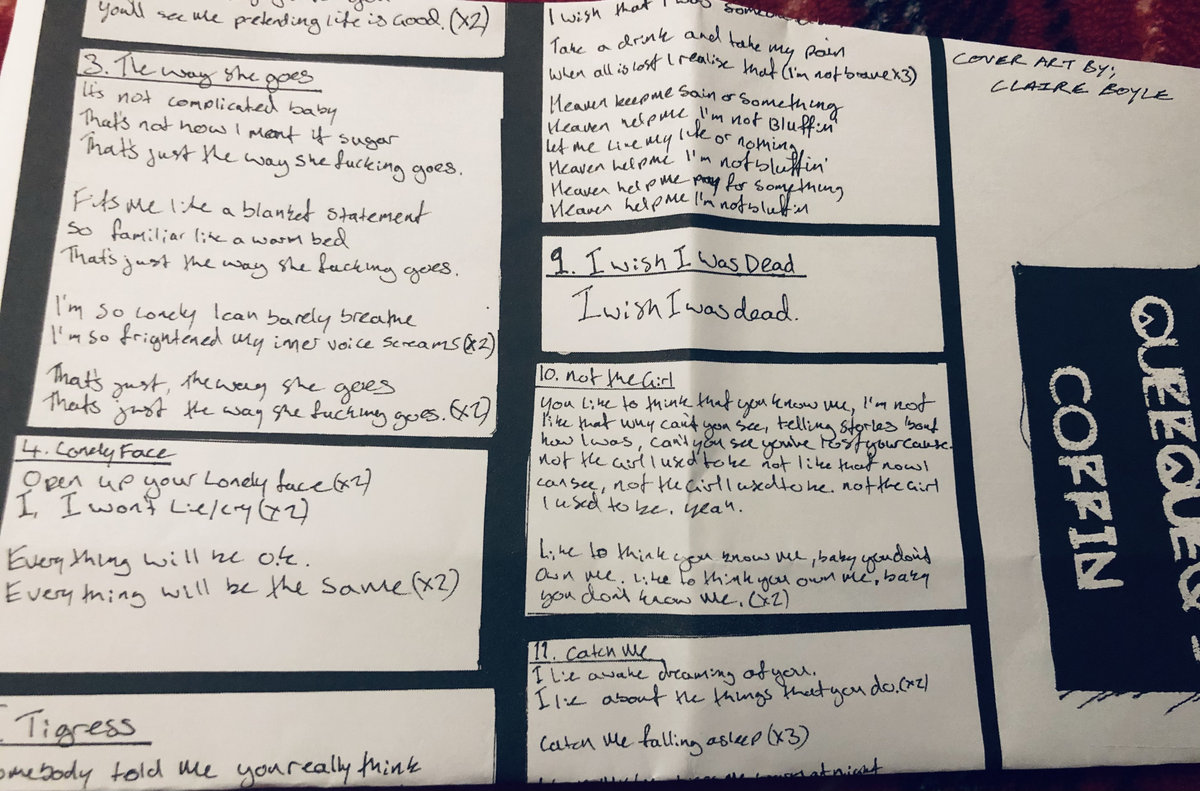 You'll see me pretending life is Good. (x2)
3. The way she goes
It's not complicated baby
That's not how I ment it sugar
That's just the way she fucking goes.
Fits me like a blanket statement
so familiar like a warm bed
That's just the way she fucking goes.
I'm so lonely I can barely breathe
I'm so frightened my inner voice screams (x2)
That's just, the way she goes
That's just the way she fucking goes. (x2)
4. Lonely Face
Open up your Lonely face (x2)
I, I won't Lie/cry (x2)
Everything will be o.k.
Everything will be the same (x2)
Tigress
omebody told me you really think
I wish that I was someone
Take a drink and take my pain
when all is lost I realise that (I'm not brave x3)
Heaven keep me sain or something
Heaven help me I'm not Bluffin'
let me live my life or nothing
Heaven help me I'm not bluffin'
Heaven help me pay for something
Heaven help me I'm not bluffin
9. I wish I was Dead
I wish I was dead.
10. not the Girl
you like to think that you know me, I'm not
like that why can't you see, telling stories 'bout
how I was, can't you see you've lost your cause.
not the girl I used to be not like that now I
can see, not the Girl I used to be. not the Girl
I used to be. yeah.
Like to think you know me, baby you don't
own me. Like to think you own me, baby
you don't know me. (x2)
11. Catch Me
I lie awake dreaming of you.
I lie about the things that you do. (x2)
Catch me falling asleep (x3)
COVER ART BY;
CLAIRE BOYLE
QUEEQUEG
COFFIN